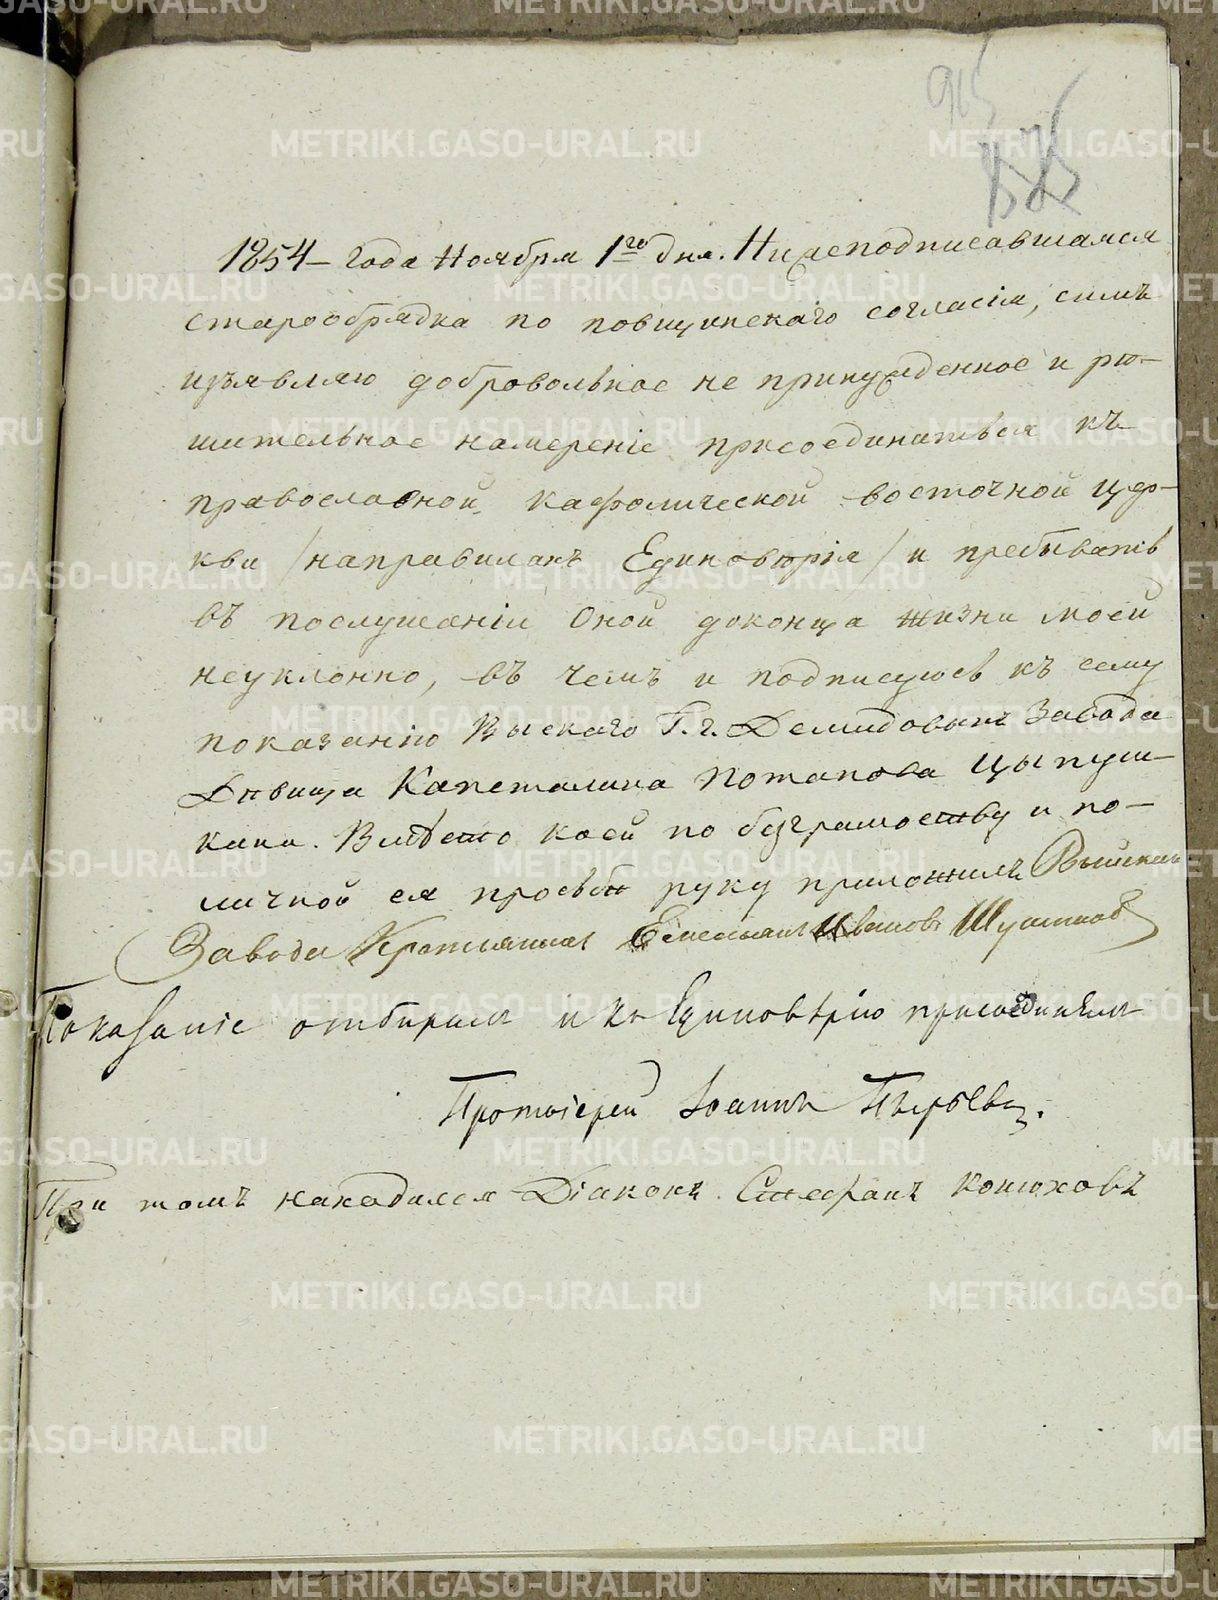 1854 – года Ноября 1го дня. Нижеподписавшаяся
старообрядка по повщинскаго согласія, симъ
изъявляю добровольное не принужденное и рѣ-
шительное намереніе присоединиться къ
православной кафолической восточной цер-
кви /на правилахъ Единовѣрія/ и пребывать
въ послушаніи Оной до конца жизни моей
неуклонно, въ чемъ и подписуюсь къ сему
показанію Выскаго Г.г. Демидовыхъ Завода
Дѣвица Капеталина Потапова Цыпуш-
кина. Вмѣсто коей по безграмоству и по-
личной ея просьбѣ руку приложилъ Выйскаго
Завода Крестьянинъ Емельянъ Ивановъ
Показаніе отбиралъ и къ Единовѣрію присоединялъ
Протоіерей Іоаннъ Пырьевъ.
При томъ находился Діаконъ Стефанъ Конюховъ